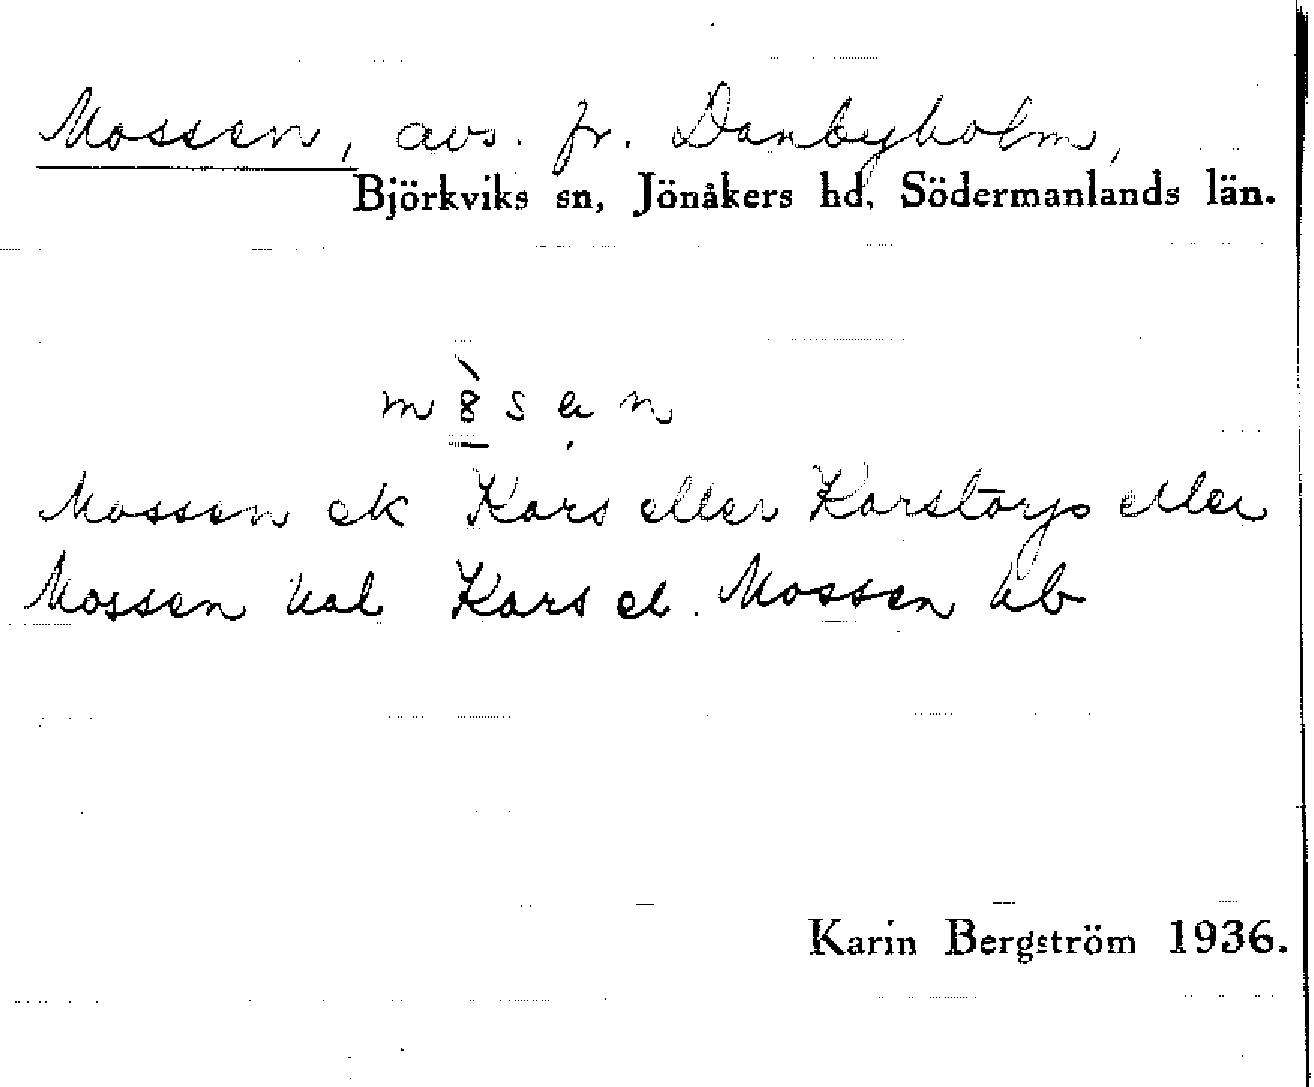 Mossen, avs. fr. Danbyholm,
Björkviks sn, Jönåkers hd, Södermanlands län.
m 8̀ s a n
Mossen ek Kars eller Karstorp eller
Mossen hal Kars el. Mossen hb
Karin Bergström 1936.